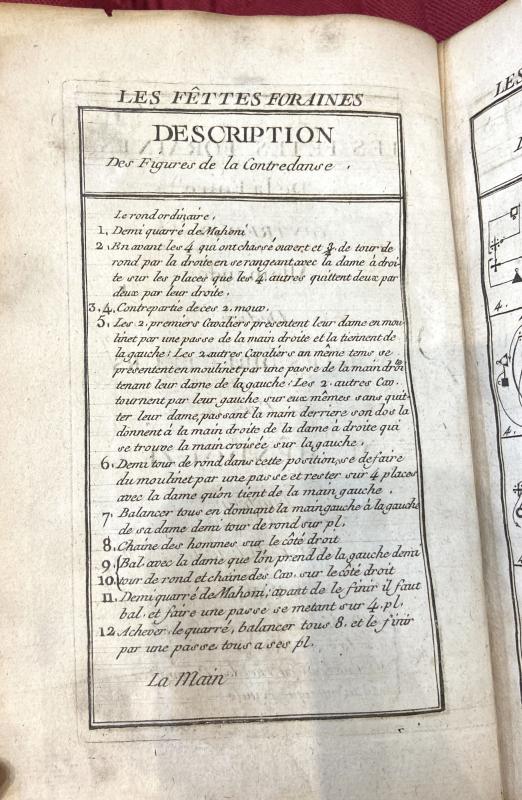 LES FÊTTES FORAINES
DESCRIPTION
Des Figures de la Contredanse.
Le rond ordinaire.
1. Demi quarré de Mahoni
2. En avant les 4 qui ont chassé ouvert et de tour de
rond par la droite en se rangeant avec la dame à droi-
te sur les places que les 4. autres quittent deux par
deux par leur droite.
3, 4. Contrepartie de ces 2. mouv.
5. Les 2. premiers Cavaliers présentent leur dame en mou-
linet par une passe de la main droite et la tiennent de
la gauche: Les 2 autres Cavaliers an même tems se
présentent en moulinet par une passe de la main droite
tenant leur dame de la gauche: Les 2. autres Cav.
tournent par leur gauche sur eux mêmes sans quit-
ter leur dame, passant la main derriere son dos la
donnent à la main droite de la dame à droite qui
se trouve la main croisée sur la gauche.
6. Demi tour de rond dans cette position, se defaire
du moulinet par une passe et rester sur 4 places
avec la dame qu'on tient de la main gauche.
7. Balancer tous en donnant la main gauche à la gauche
de sa dame demi tour de rond sur pl.
8. Chaine des hommes sur le côté droit
9. Bal. avec la dame que l'on prend de la gauche demi
10. tour de rond et chaine des Cav. sur le côté droit
11. Demi quarré de Mahoni; avant de le finir il faut
bal. et faire une passe se metant sur 4. pl.
12. Achever le quarré, balancer tous 8. et le finir
par une passe tous a ses pl.
La Main
LES
4.
4.